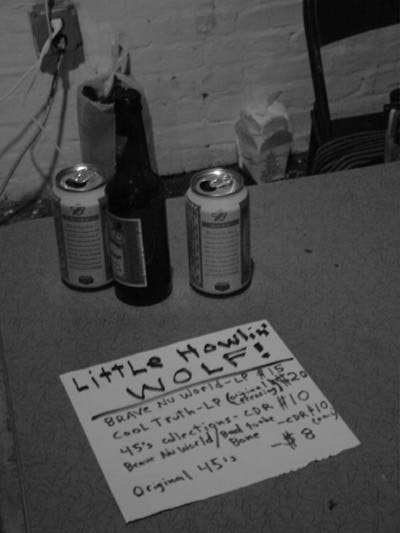 Little Howlin'
WOLF!
BRAVE NU WORLD-LP $15
COOL TRUTH-LP (original pressing) $20
45's collections-CDR $10
Brave Nu World/Bad to the Bone -CDR $10
Original 45's -$8